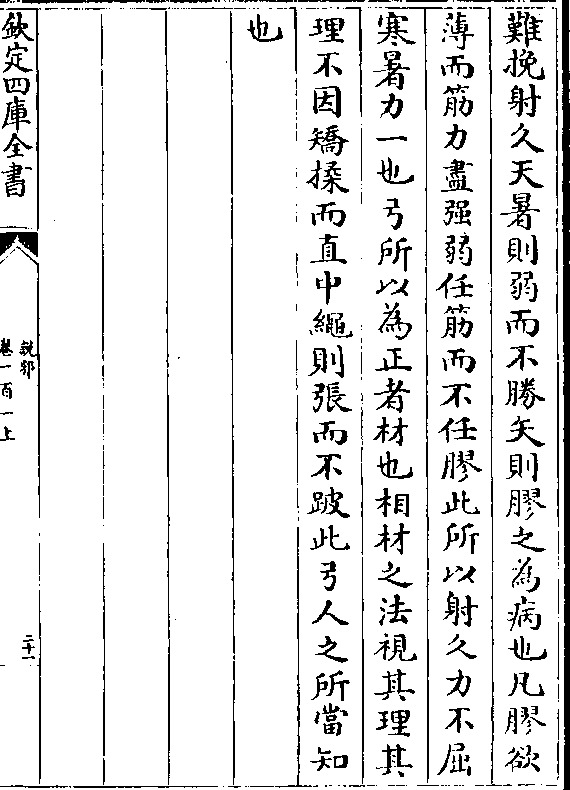 難挽射久天暑則弱而不勝矢則膠之為病也凡膠欲
薄而筋力盡强弱任筋而不任膠此所以射久力不屈
寒暑力一也弓所以為正者材也相材之法視其理其
理不因矯揉而直中繩則張而不跛此弓人之所當知
也
欽定四庫全書
說郛
卷一百一上
二十一